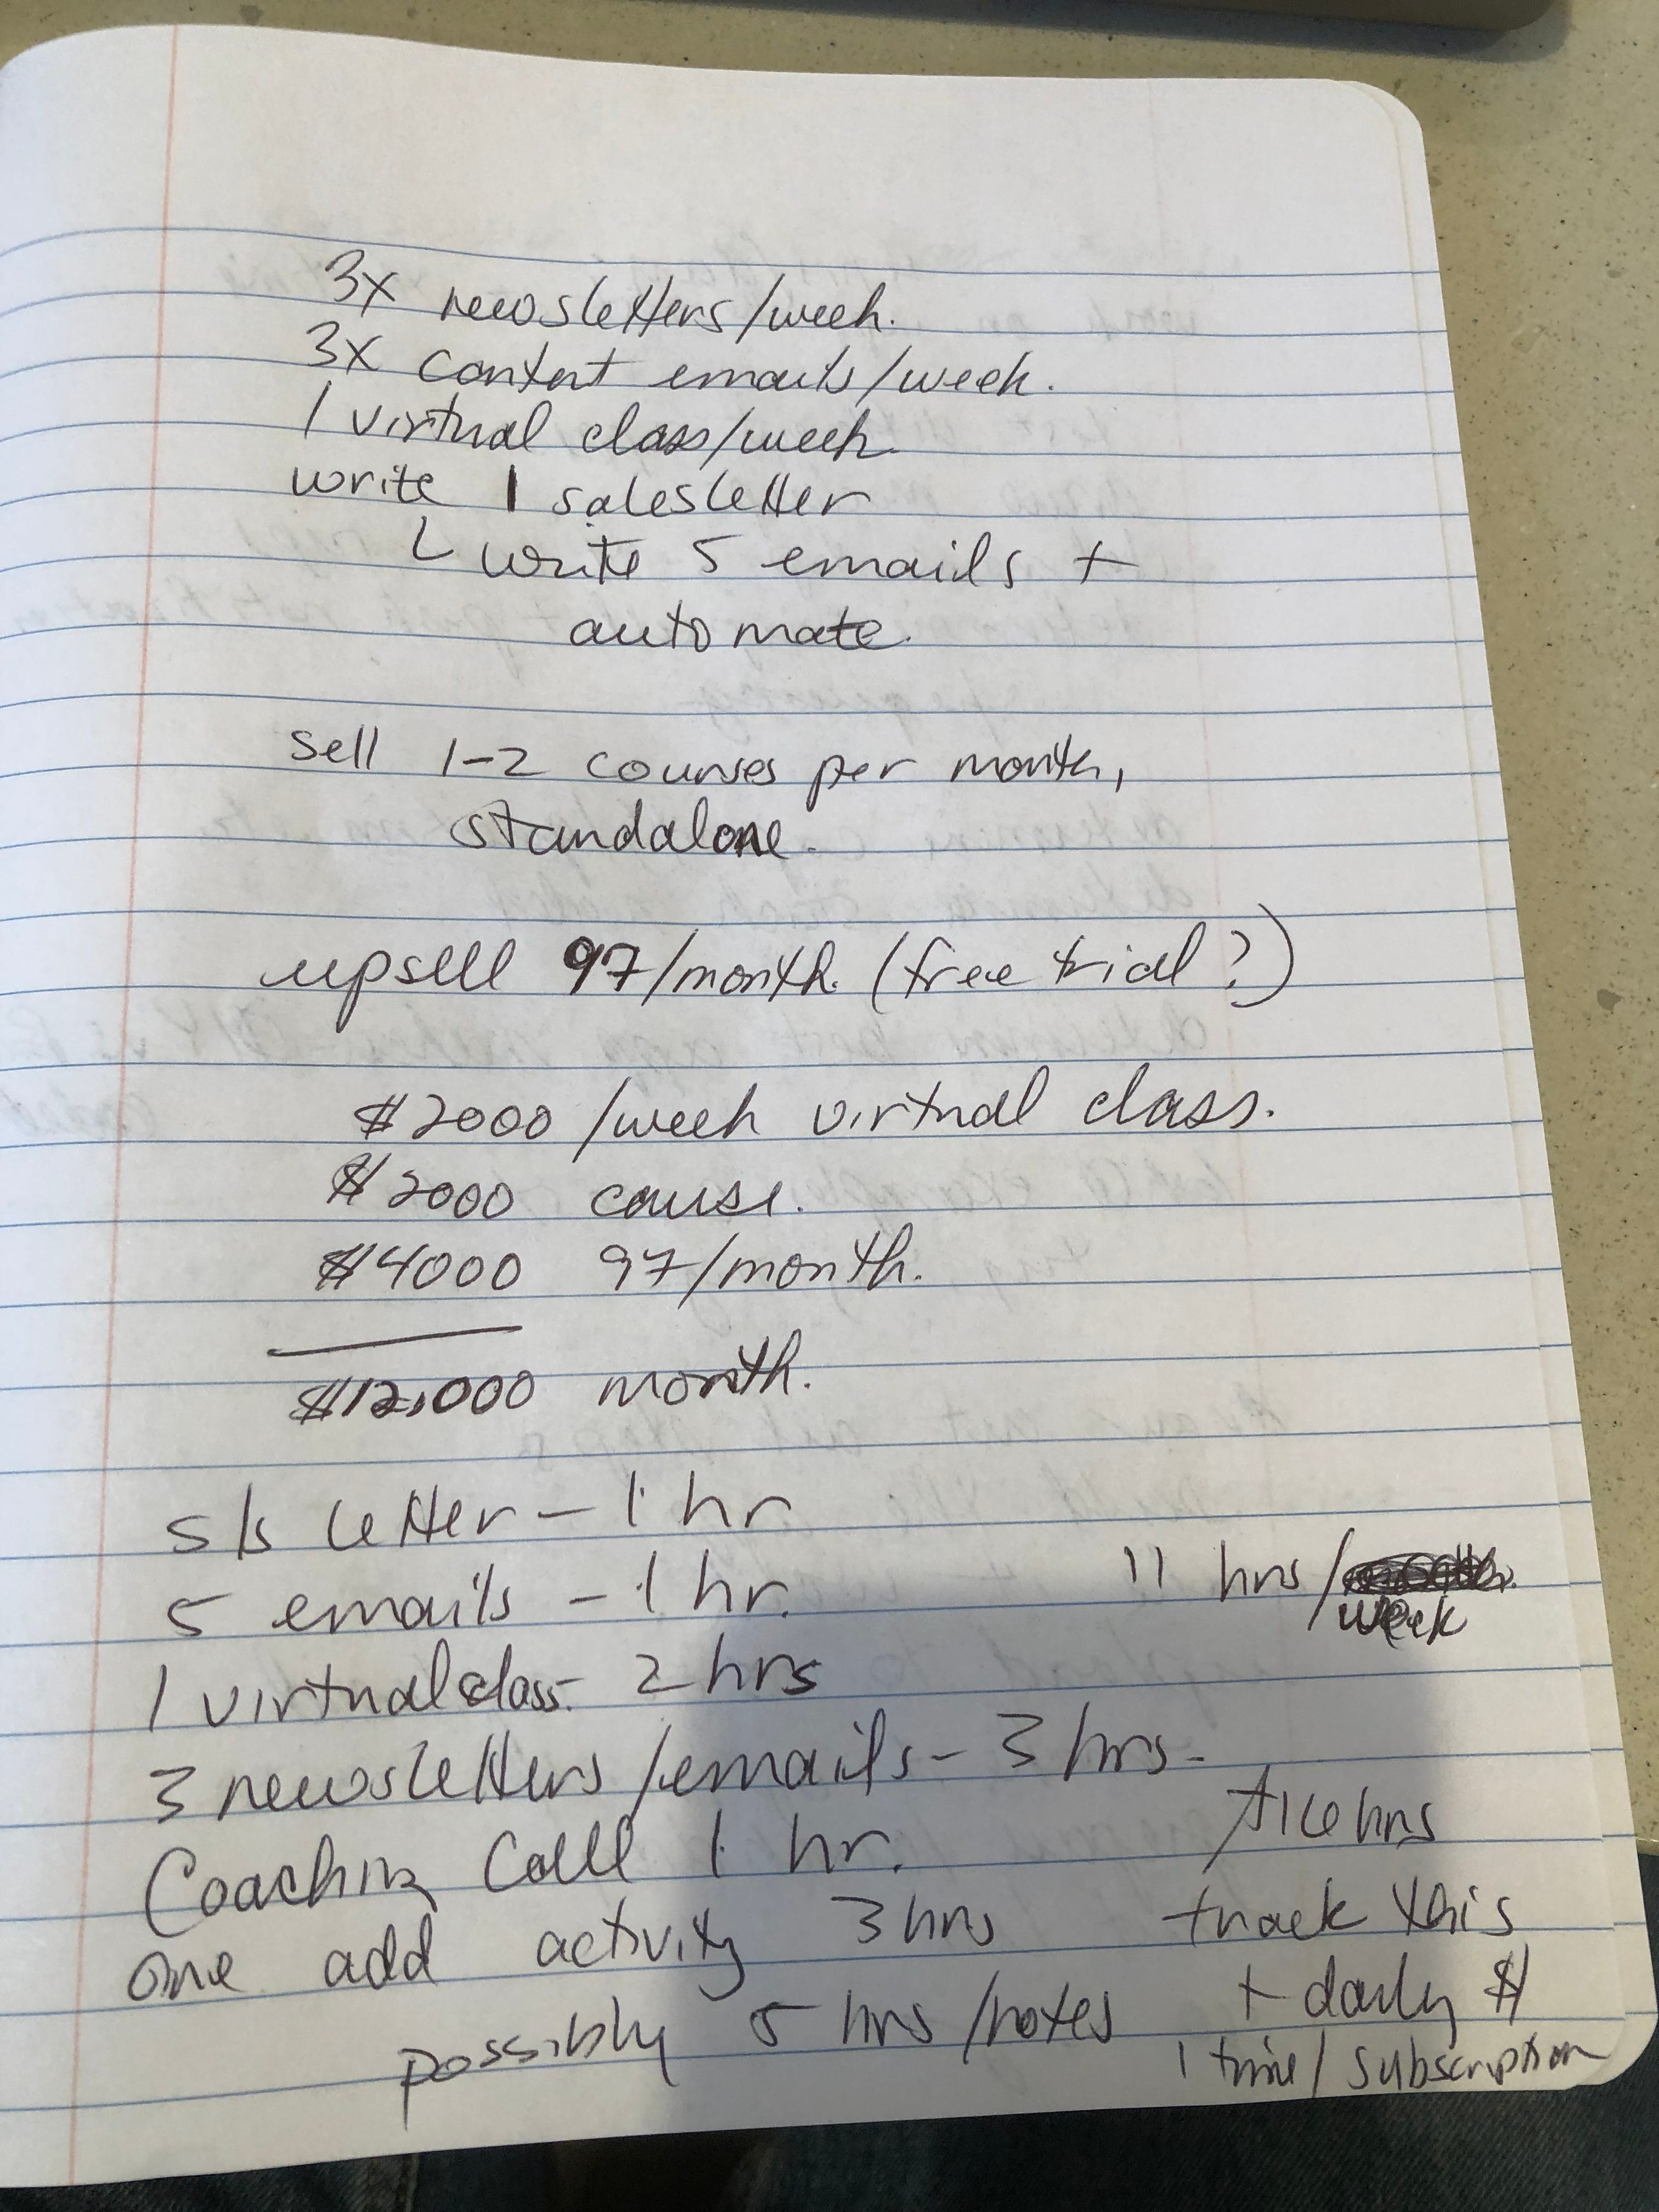 3x newsletters/week.
3x content emails/week.
1 virtual class/week.
write 1 salesletter
└ write 5 emails +
automate.
sell 1-2 courses per month,
standalone.
upsell 97/month. (free trial?)
$2000 /week virtual class.
$2000 course.
$4000 97/month.
$12,000 month.
s/s letter - 1 hr
5 emails - 1 hr.
11 hrs/
week
1 virtual class - 2 hrs
3 newsletters/emails - 3 hrs -
Coaching Call 1 hr.
hrs
one add activity 3 hrs
track this
possibly 5 hrs/notes
+ daily $
1 time/subscription